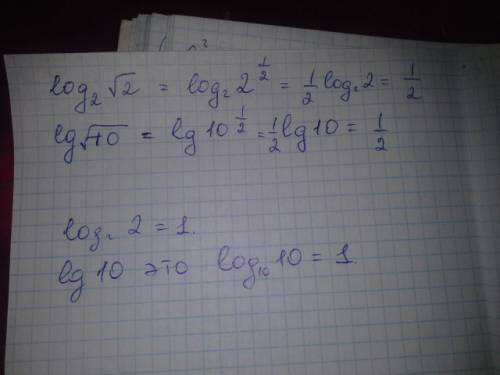 log₂ √2 = log₂ 2^(1/2) = 1/2 log₂ 2 = 1/2
lg √10 = lg 10^(1/2) = 1/2 lg 10 = 1/2
log₂ 2 = 1.
lg 10 это log₁₀ 10 = 1